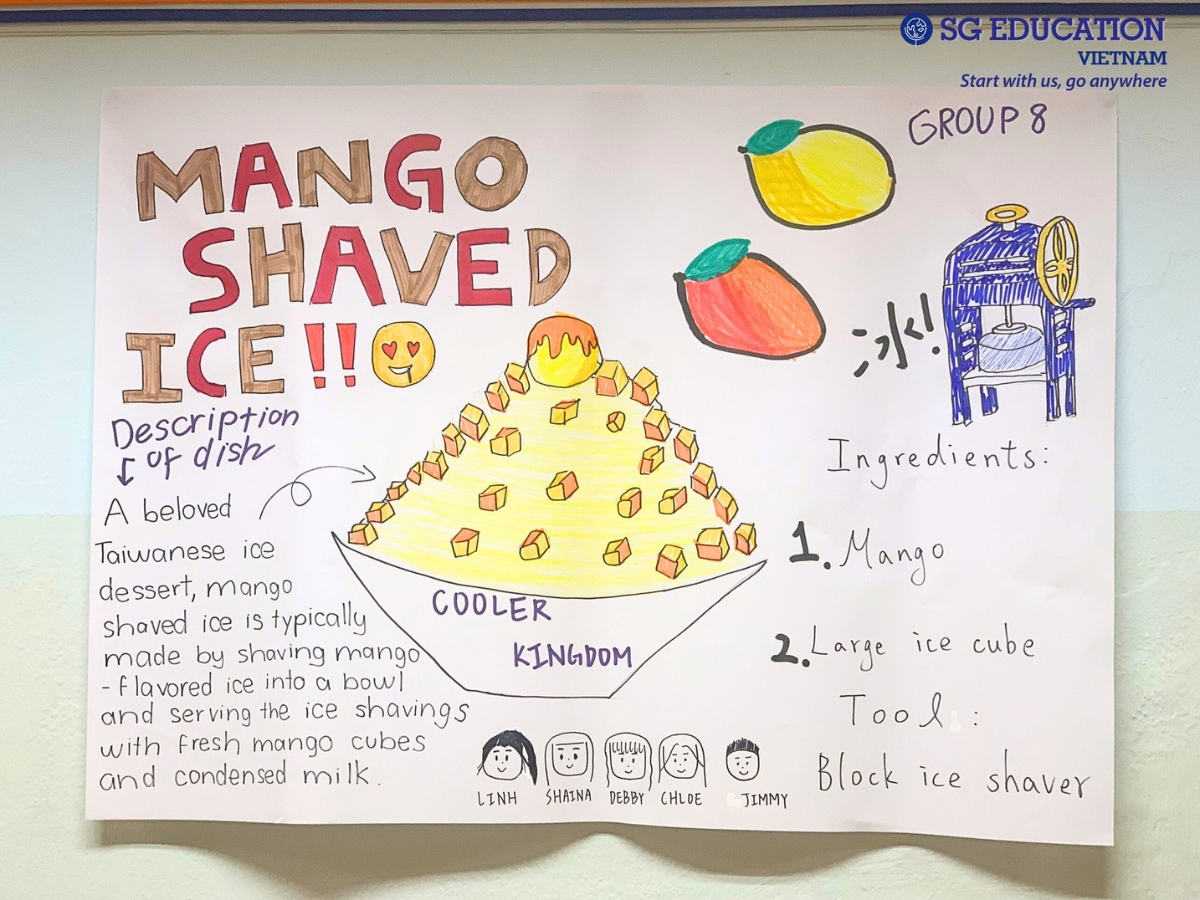 SG EDUCATION
VIETNAM
Start with us, go anywhere
GROUP 8
MANGO
SHAVED
ICE!!
冰!
Description
of dish
A beloved
Taiwanese ice
dessert, mango
shaved ice is typically
made by shaving mango
-flavored ice into a bowl
and serving the ice shavings
with fresh mango cubes
and condensed milk.
COOLER
KINGDOM
LINH SHAINA DEBBY CHLOE JIMMY
Ingredients:
1. Mango
2. Large ice cube
Tool :
Block ice shaver